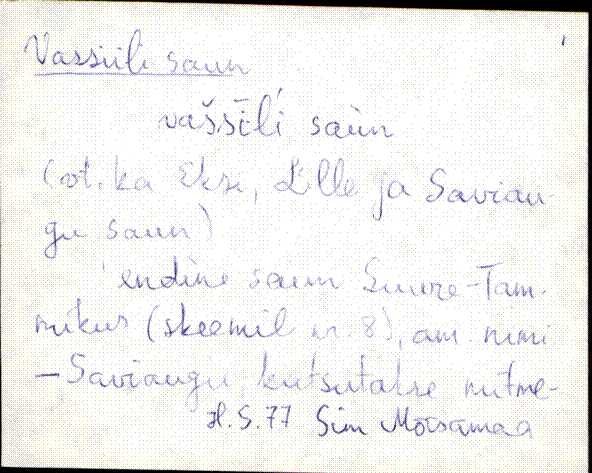 Vassiili saun
vaššīĺi saùn
(vt. ka Ekse, Lille ja Saviau-
gu saun)
endine saun Suure-Tam-
mikus (skeemil nr. 8), am. nimi
– Saviaugu, kutsutakse mitme-
H.S. 77 Siim Mõisamaa